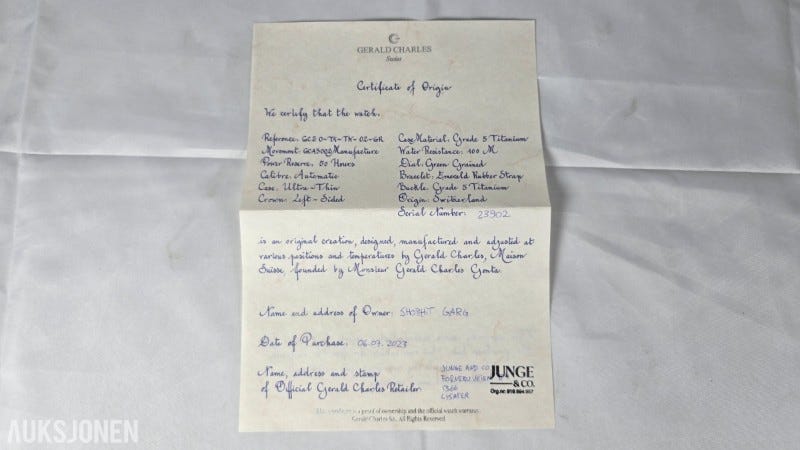 GERALD CHARLES
Swiss
Certificate of Origin
We certify that the watch:
Reference: GC2.0-TX-TN-02-GR
Movement: GCA3002 Manufacture
Power Reserve: 50 Hours
Calibre: Automatic
Case: Ultra-Thin
Crown: Left-Sided
Case Material: Grade 5 Titanium
Water Resistance: 100 M
Dial: Green Grained
Bracelet: Emerald Rubber Strap
Buckle: Grade 5 Titanium
Origin: Switzerland
Serial Number: 23902
is an original creation, designed, manufactured and adjusted at
various positions and temperatures by Gerald Charles, Maison
Suisse, founded by Monsieur Gerald Charles Genta.
Name and address of Owner: SHOBHIT GARG
Date of Purchase: 06.07.2023
Name, address and stamp
of Official Gerald Charles Retailer
JUNGE AND CO
1366
LYSAKER
JUNGE
& CO.
Org.nr. 918
This certificate is a proof of ownership and the official watch warranty.
Gerald Charles Sa. All Rights Reserved
AUKSJONEN